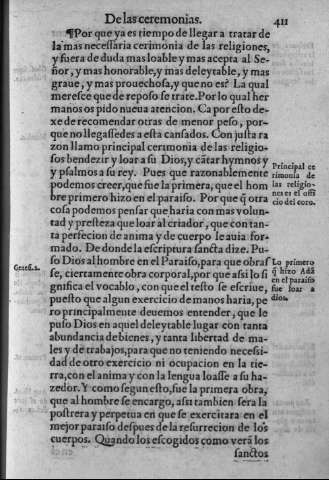 De las ceremonias. 411
¶Por que ya es tiempo de llegar a tratar de
la mas necessaria cerimonia de las religiones,
y fuera de duda mas loable y mas acepta al Se-
ñor, y mas honorable, y mas deleytable, y mas
graue, y mas prouechosa, y que no es? La qual
meresce que de reposo se trate. Por lo qual her
manos os pido nueua atencion. Ca por esto de-
xe de recomendar otras de menor peso, por-
que no llegassedes a esta cansados. Con justa ra
zon llamo principal cerimonia de las religio-
sos bendezir y loar a su Dios, y cãtar hymnos y
y psalmos a su rey. Pues que razonablemente
podemos creer, que fue la primera, que el hom
bre primero hizo en el paraiso. Por que q̃ otra
cosa podemos pensar que haria con mas volun-
tad y presteza que loar al criador, que con tan-
ta perfecion de anima y de cuerpo le auia for-
mado. De donde la escriptura sancta dize. Pu-
so Dios al hombre en el Paraiso, para que obras
se, ciertamente obra corporal, por que assi lo si
gnifica el vocablo, con que el testo se escriue,
puesto que algun exercicio de manos haria, pe
ro principalmente deuemos entender, que le
puso Dios en aquel deleytable lugar con tanta
abundancia de bienes, y tanta libertad de ma-
les y de trabajos, para que no teniendo necessi-
dad de otro exercicio ni ocupacion en la tie-
rra, con el anima y con la lengua loasse a su ha-
zedor. Y como segun esto, fue la primera obra,
que al hombre se encargo, assi tambien sera la
postrera y perpetua en que se exercitara en el
mejor paraiso despues de la resurrecion de los
cuerpos. Quando los escogidos como verà los
sanctos
Principal ce
rimonia de
las religio-
nes es el offi
cio del coro.
Genes. 2.
Lo primero
q̃ hizo Adã
en el paraiso
fue loar a
dios.